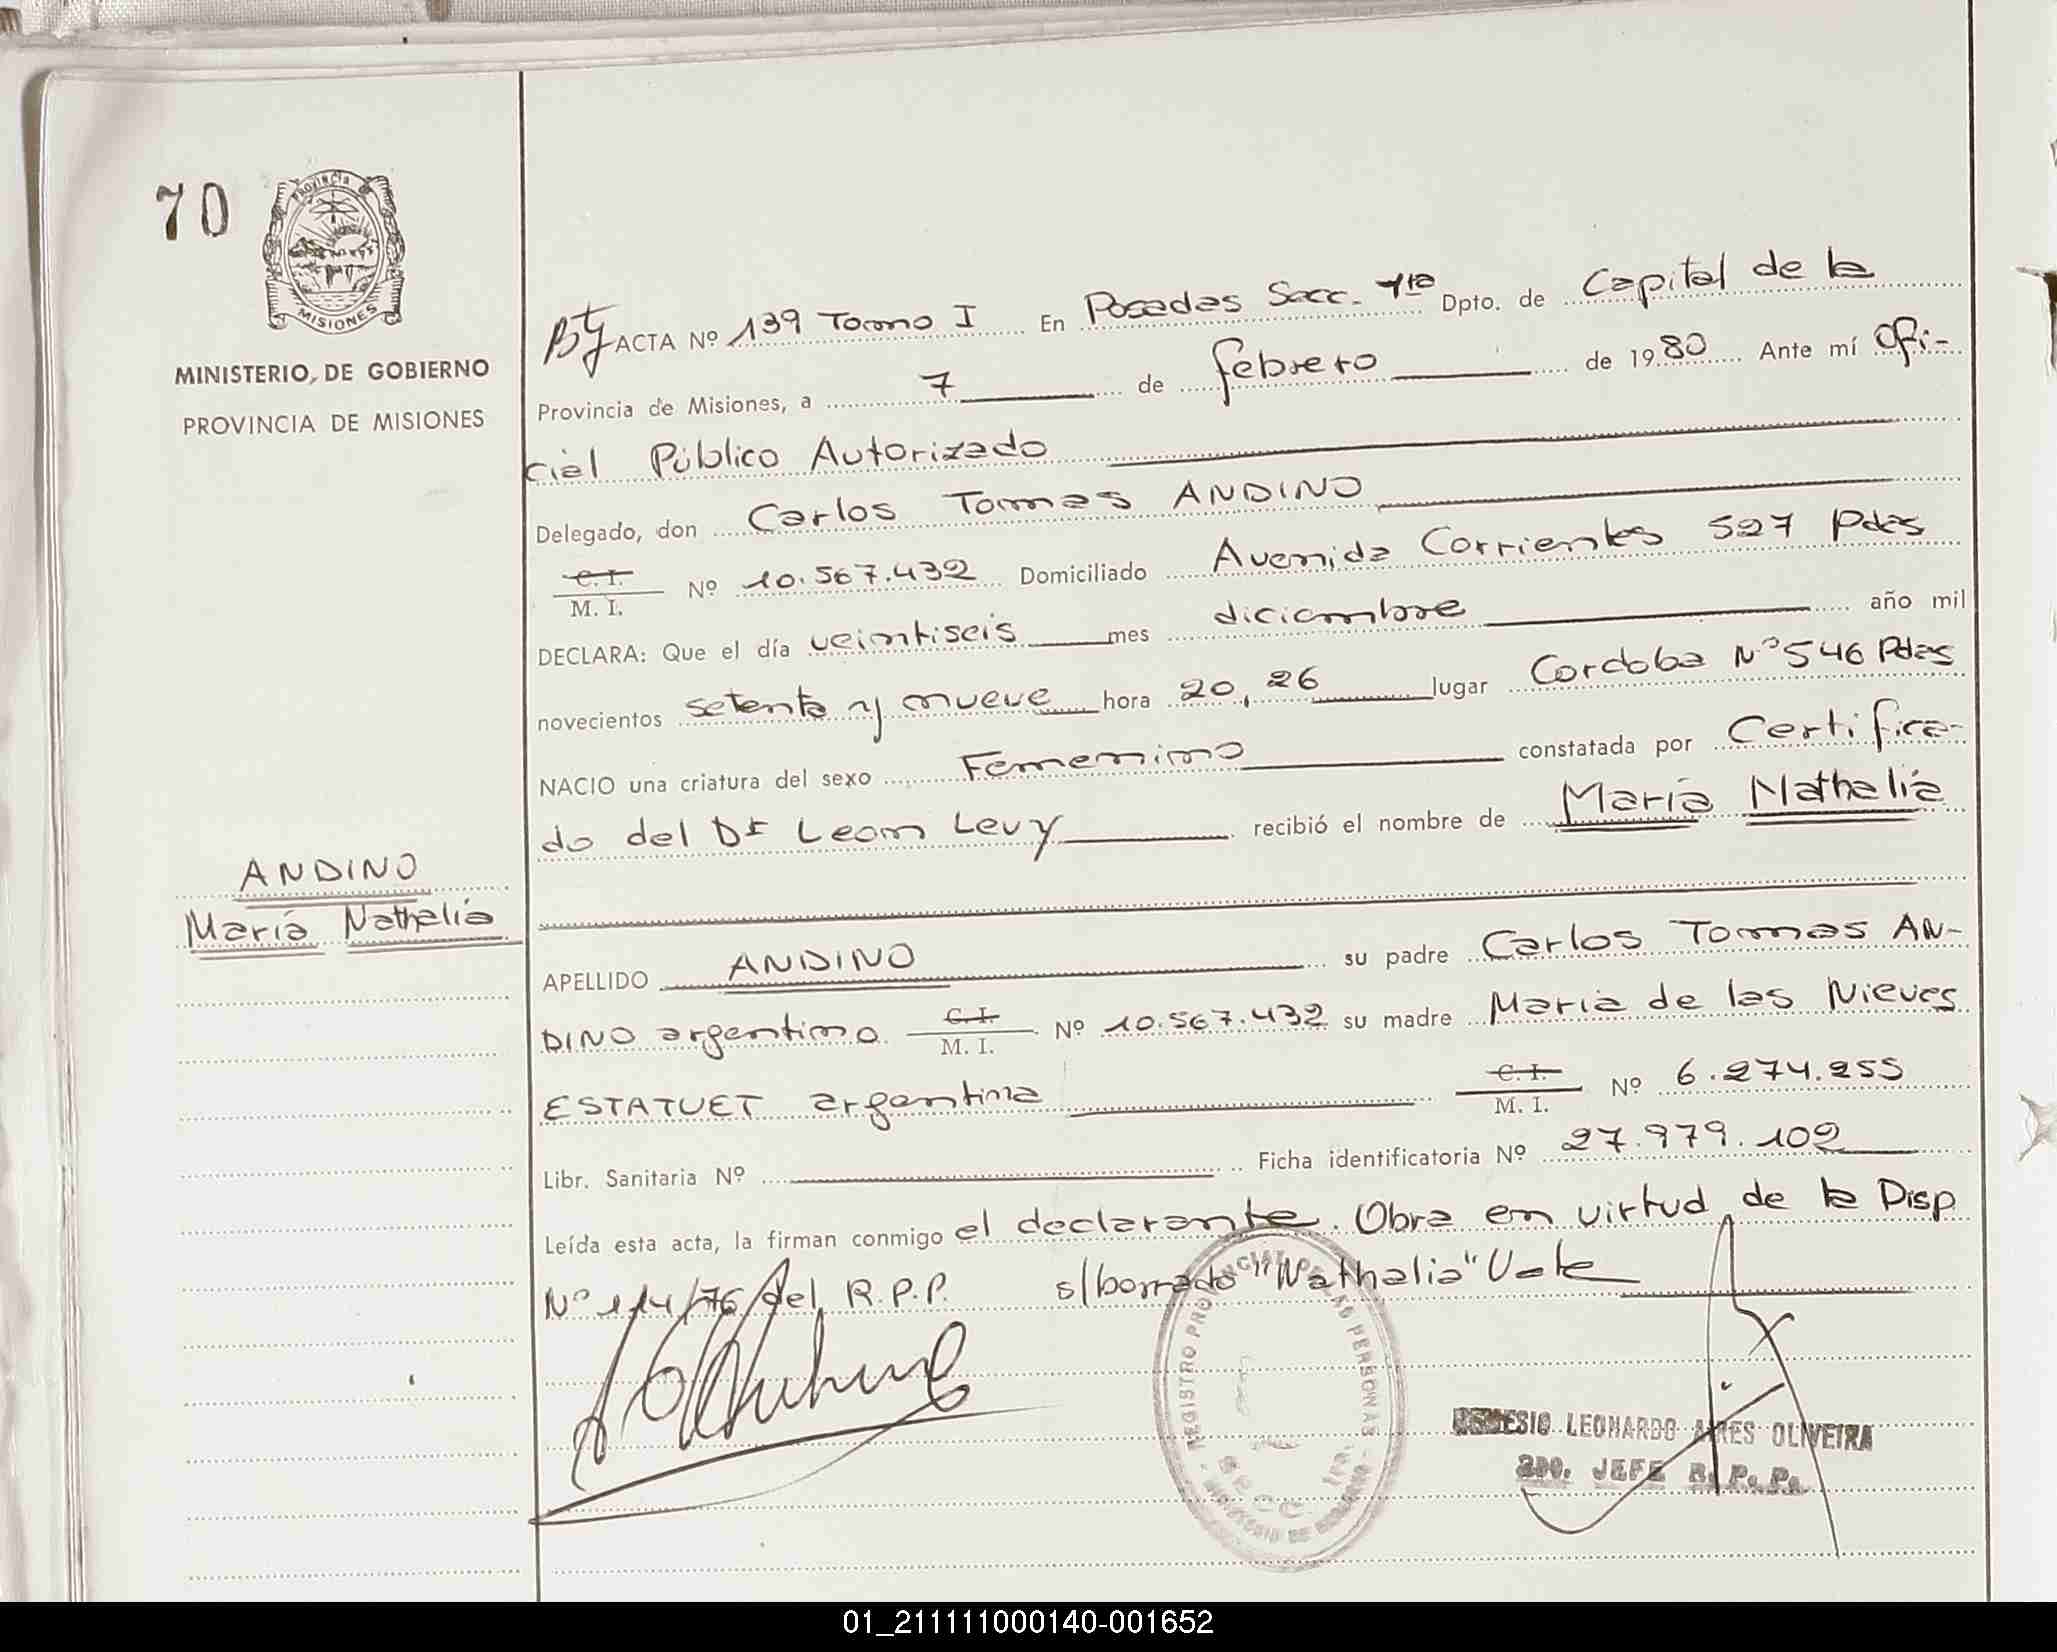 70
PROVINCIA
MISIONES
MINISTERIO DE GOBIERNO
PROVINCIA DE MISIONES
ANDINO
María Nathalia
ACTA Nº 139 Tomo I En Posadas Secc. 1ra Dpto. de Capital de la
Provincia de Misiones, a 7 de febrero de 1980 Ante mí Ofi-
cial Público Autorizado
Delegado, don Carlos Tomas ANDINO
C. I. / M. I. Nº 10.567.432 Domiciliado Avenida Corrientes 527 Pdas
DECLARA: Que el día veintiseis mes diciembre año mil
novecientos setenta y nueve hora 20,26 lugar Cordoba Nº 546 Pdas
NACIO una criatura del sexo Femenino constatada por Certifica-
do del Dr Leon Levy recibió el nombre de María Nathalia
APELLIDO ANDINO su padre Carlos Tomas AN-
DINO argentino C. I. / M. I. Nº 10.567.432 su madre María de las Nieves
ESTATUET argentina C. I. / M. I. Nº 6.274.255
Libr. Sanitaria Nº Ficha identificatoria Nº 27.979.102
Leída esta acta, la firman conmigo el declarante. Obra en virtud de la Disp
Nº 114/76 del R.P.P. s/borrado "Nathalia" Vale
REGISTRO PROVINCIAL DE LAS PERSONAS - MINISTERIO DE GOBIERNO -
SECC. 1RA.
LEONARDO AIRES OLIVEIRA
2DO. JEFE R. P. P.
01_211111000140-001652